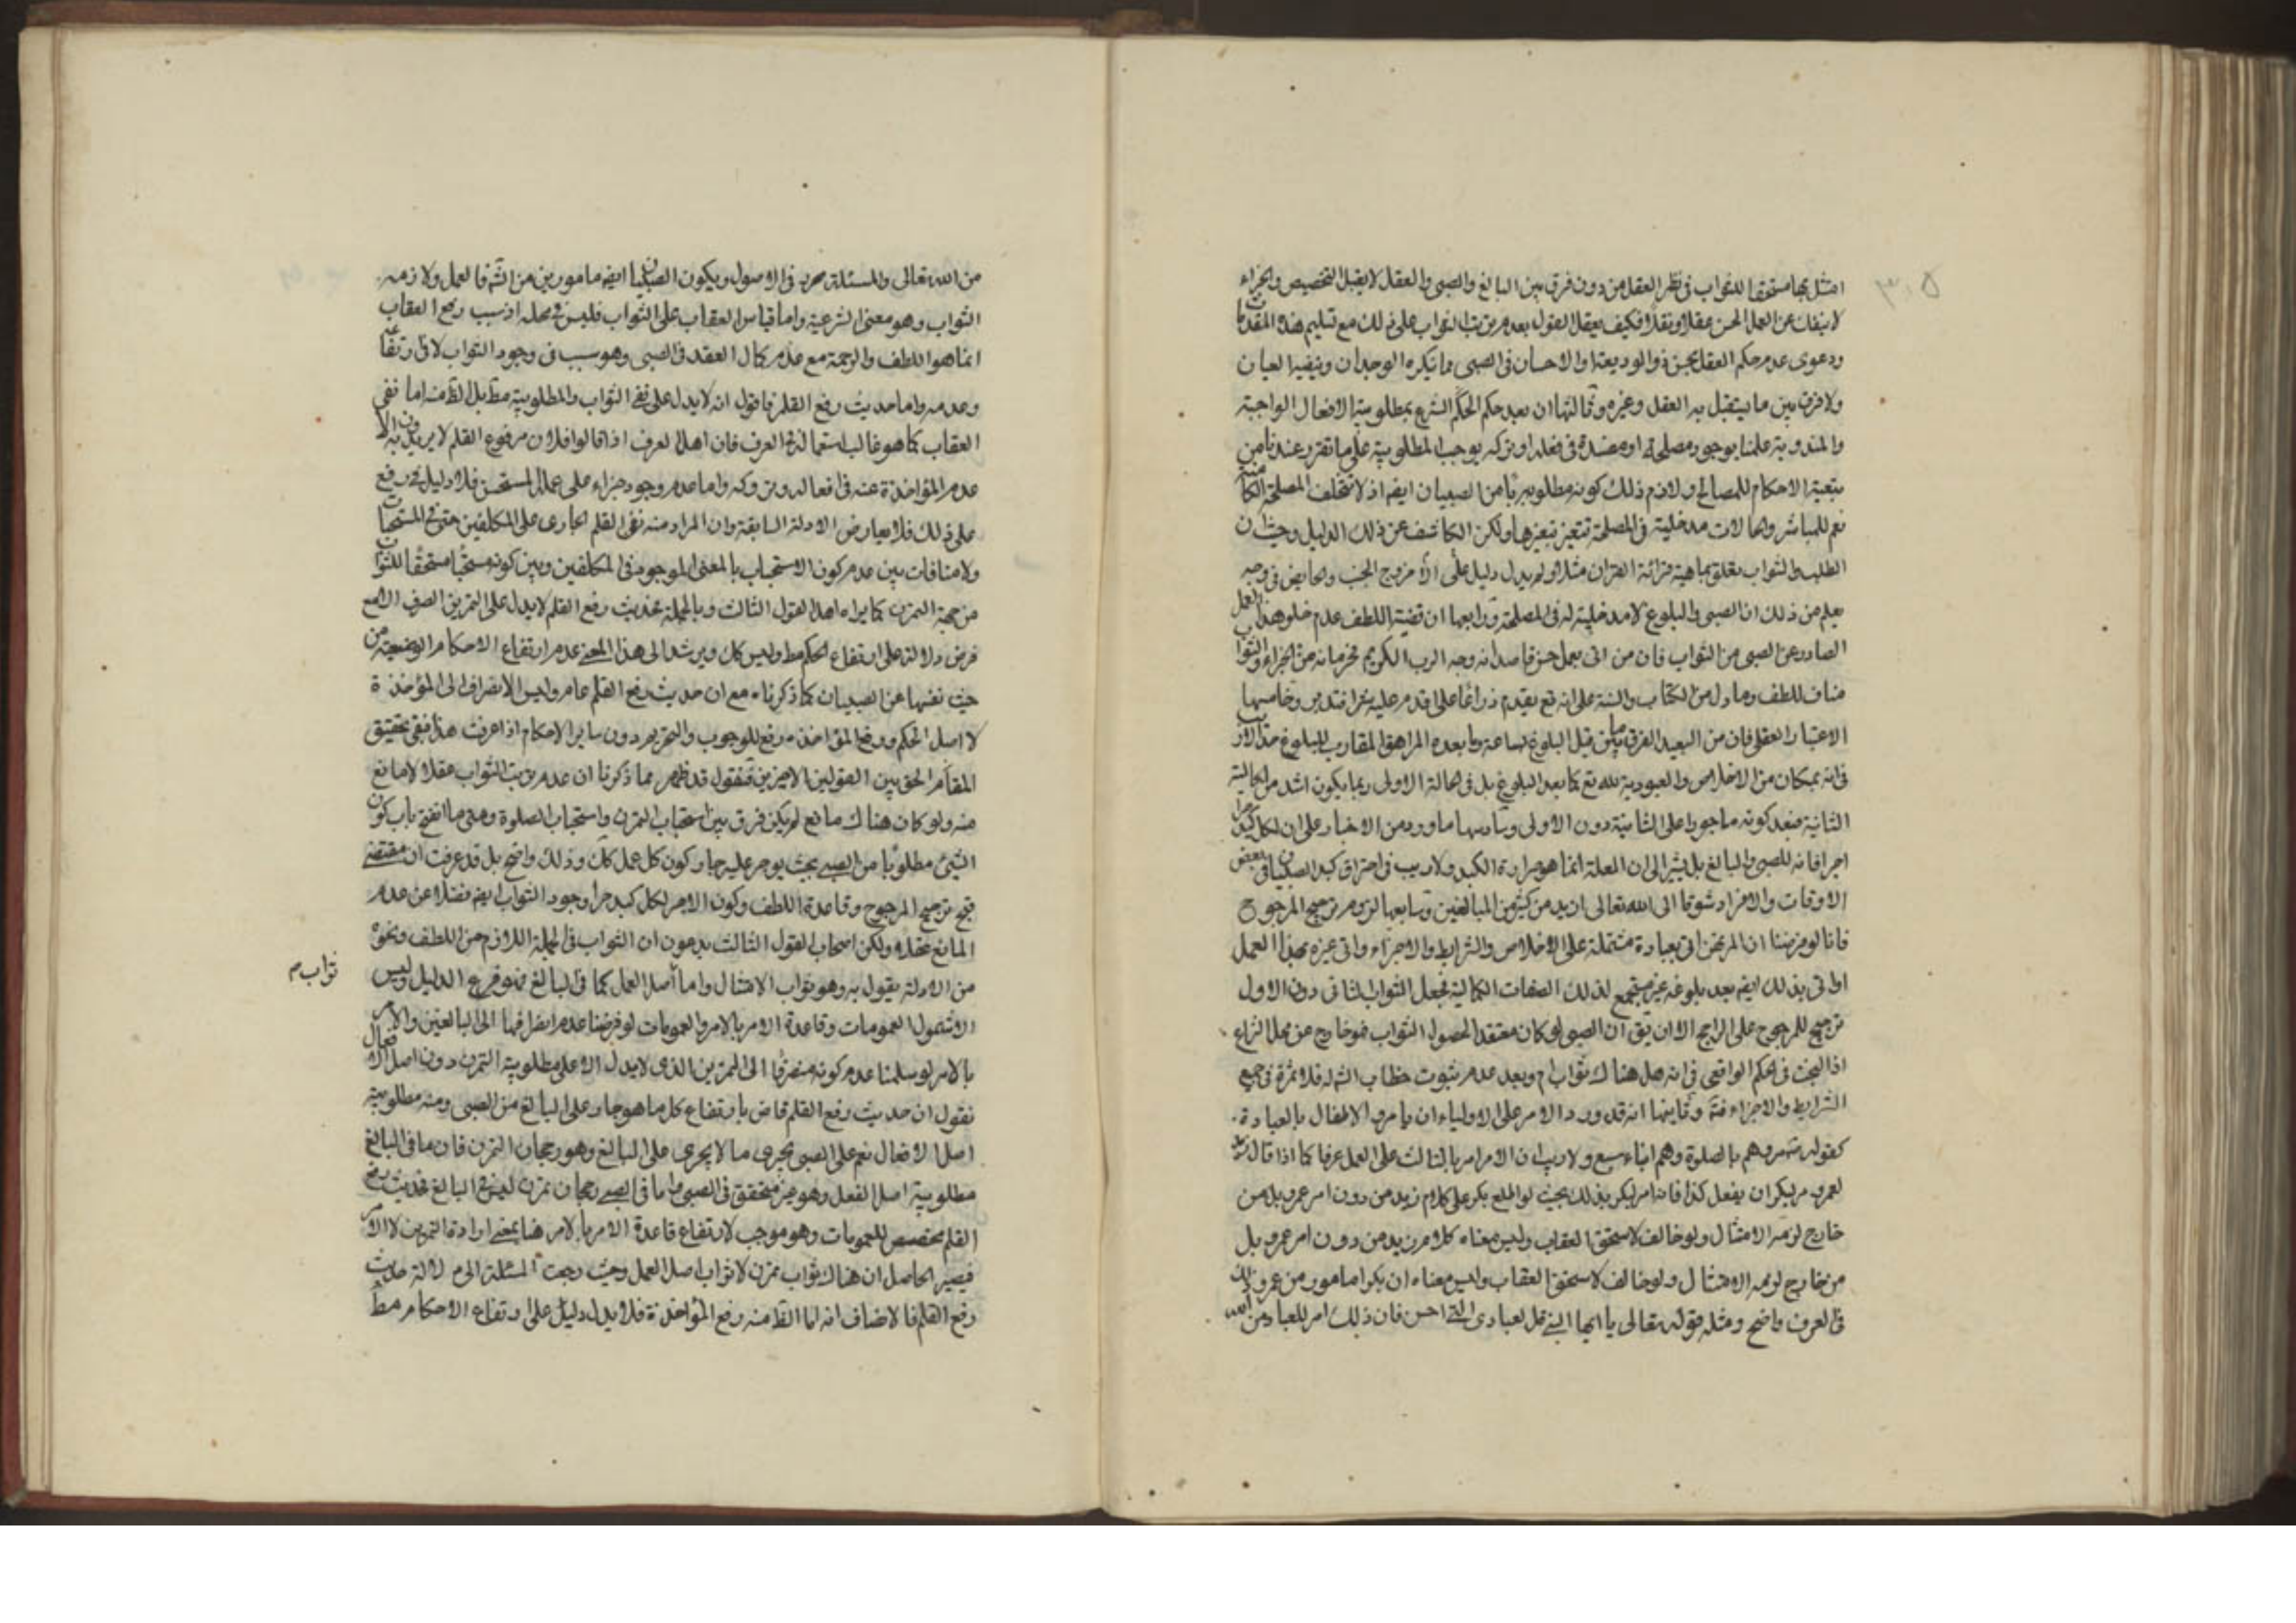 ٣٠٥
امتثل بها مستحقا للثواب فى نظر العقل من دون فرق بين البالغ والصبى والعقل لا يقبل التخصيص والجزاء
لا ينفك عن العمل الحسن عقلا ونقلا فكيف يعقل القول بعدم ترتب الثواب على ذلك مع تسليم هذه المقدمات
ودعوى عدم حكم العقل بحسن رد الوديعة والاحسان فى الصبى مما ينكره الوجدان وينفيه العيان
ولا فرق بين ما يستقبل به العقل وغيره وثالثها ان بعد حكم الشرع بمطلوبية الافعال الواجبة
والمندوبة علمنا بوجود مصلحة او مفسدة فى فعله او تركه يوجب المطلوبية على ما تقرر عندنا من
تبعية الاحكام للمصالح ولازم ذلك كونه مطلوبا من الصبيان ايضا اذ لا تتخلف المصلحة
نعم للمباشر والحالات مدخلية فى المصلحة تتغير بتغيرها ولكن الكاشف عن ذلك الدليل وحيث ان
الطلب والثواب تعلق بماهية قرائة القران مثلا ولم يدل دليل على الا خروج الجنب والحايض فى وجه
يعلم من ذلك ان الصبى والبلوغ لا مدخلية له فى المصلحة ورابعها ان قضية اللطف عدم خلو هذا العمل
الصادر عن الصبى من الثواب فان من اتى بعمل حسن قاصدا به وجه الرب الكريم فحرمانه من الجزاء والثواب
مناف للطف وما دل من الكتاب والسنة على انه تع يقدم ذراعا على قدم عليه شبرا فتدبر وخامسها
الاعتبار العقلى فان من البعيد الفرق بين ما قبل البلوغ بساعة وما بعده المراهق المقارب للبلوغ
فى انه بمكان من الاخلاص والعبودية لله تع كما بعد البلوغ بل فى الحالة الاولى ربما يكون اشد من الحالة
الثانية فبعد كونه ماجورا على الثانية دون الاولى وسادسها ما ورد من الاخبار على ان لكل كبد حرا
اجر فانه للصبى والبالغ بل يشير الى ان العلة انما هو حرارة الكبد ولا ريب فى احتراق كبد الصبيان فى بعض
الاوقات والافراد شوقا الى الله تعالى ازيد من كثير من البالغين وسابعها لزوم ترجيح المرجوح
فانا لو فرضنا ان المرء اتى بعبادة مشتملة على الاخلاص والشرايط والاجزاء واتى غيره بهذا العمل
او اتى بذلك ايضا بعد بلوغه غير مستجمع لذلك الصفات الكمالية فجعل الثواب للثانى دون الاول
ترجيح للمرجوح على الراجح الا ان يق ان الصبى لو كان معتقدا لحصول الثواب فهو خارج عن محل النزاع
اذ البحث فى الحكم الواقعى فى انه هل هناك ثواب ام وبعد عدم ثبوت خطاب الشرع له فلا ثمرة فى جميع
الشرايط والاجزاء فتم وثامنها انه قد ورد الامر على الاولياء ان يامروا الاطفال بالعبادة
كقوله مروهم بالصلوة وهم ابناء سبع ولا ريب ان الامر امر بالثالث على العمل عرفا كما اذا قال زيد
لعمرو مر بكرا ان يفعل كذا فانه امر لبكر بذلك بحيث لو اطلع بكر على كلام زيد من دون امر عمرو بل من
خارج لزمه الامتثال ولو خالف لاستحق العقاب وليس معناه كلام زيد من دون امر عمرو بل
من خارج لزمه الامتثال ولو خالف لاستحق العقاب وليس معناه ان بكرا مامور من عمرو وذلك
فى العرف واضح ومثله قوله تعالى يا ايها النبى قل لعبادى التى احسن فان ذلك امر للعباد من الله
من الله تعالى والمسئلة محررة فى الاصول ويكون الصبيان ايضا مامورين من الشرع فالعمل ولازمه
الثواب وهو معنى الشرعية واما قياس العقاب على الثواب فليس فى محله اذ سبب رفع العقاب
انما هو اللطف والرحمة مع عدم كمال العقد فى الصبى وهو سبب فى وجود الثواب لا
وعدمه واما حديث رفع القلم فاقول انه لا يدل على نفى الثواب والمطلوبية مط بل الظ منه اما نفى
العقاب كما هو غالب استعماله فى العرف فان اهل العرف اذا قالوا فلان مرفوع القلم لا يريدون به الا
عدم المؤاخذة عنه فى افعاله وتروكه واما عدم وجود جزاء على عمله المستحسن فلا دليل فى رفع
على ذلك فلا يعارض الادلة السابقة وان المراد منه نفى القلم الجارى على المكلفين حتى فى المستحبات
ولا منافات بين عدم كون الاستحباب بالمعنى الموجود فى المكلفين وبين كونه مستحبا مستحقا للثواب
من جهة التمرن كما يراه اهل القول الثالث وبالجملة فحديث رفع القلم لا يدل على التمرين الصرف الا مع
فرض دلالته على ارتفاع الحكم مط وليس كك ويرشد الى هذا المعنى عدم ارتفاع الاحكام الوضعية من
حيث نفسها عن الصبيان كما ذكرناه مع ان حديث رفع القلم عام وليس الا لانصراف الى المؤاخذة
لا اصل الحكم ورفع المؤاخذة رفع للوجوب والتحريم دون ساير الاحكام اذا عرفت هذا فبقى تحقيق
المقام الحق بين القولين الاخيرين فنقول قد ظهر مما ذكرنا ان عدم ترتب الثواب عقلا لا مانع
منه ولو كان هناك مانع لم يكن فرق بين استحباب التمرن واستحباب الصلوة ومتى ما انفتح باب كون
الشئ مطلوبا من الصبى بحيث يوجر عليه جاز كون كل عمل كك وذلك واضح بل قد عرفت ان مقتضى
قبح ترجيح المرجوح وقاعدة اللطف وكون الاجر لكل كبد حرا وجود الثواب ايضا فضلا عن عدم
المانع عقلا ولكن اصحاب القول الثالث يدعون ان الثواب فى الجملة اللازم من اللطف ونحوه
من الادلة يقول به وهو ثواب الامتثال واما اصل العمل كما فى البالغ فهو فرع الدليل وليس
الا شمول العمومات وقاعدة الامر بالامر والعمومات لو فرضنا عدم انصرافها الى البالغين والامر
بالامر لو سلمنا عدم كونه منصرفا الى التمرين الذى لا يدل الا على مطلوبية التمرن دون اصل الافعال
نقول ان حديث رفع القلم قاض بارتفاع كل ما هو جار على البالغ من الصبى ومنه مطلوبية
اصل الافعال نعم على الصبى يجرى ما لا يجرى على البالغ وهو رجحان التمرن فان ما فى البالغ
مطلوبية اصل الفعل وهو غير متحقق فى الصبى وما فى الصبى رجحان تمرن ليس فى البالغ فحديث رفع
القلم مخصص للعمومات وهو موجب لارتفاع قاعدة الامر بالامر هنا بمعنى ارادة التمرين لا الامر
فيصير الحاصل ان هناك ثواب تمرن لا ثواب اصل العمل وحيث رجعت المسئلة الى دلالة حديث
رفع القلم فالانصاف انه اما الظ منه رفع المؤاخذة فلا يدل دليل على ارتفاع الاحكام مط
ثواب م